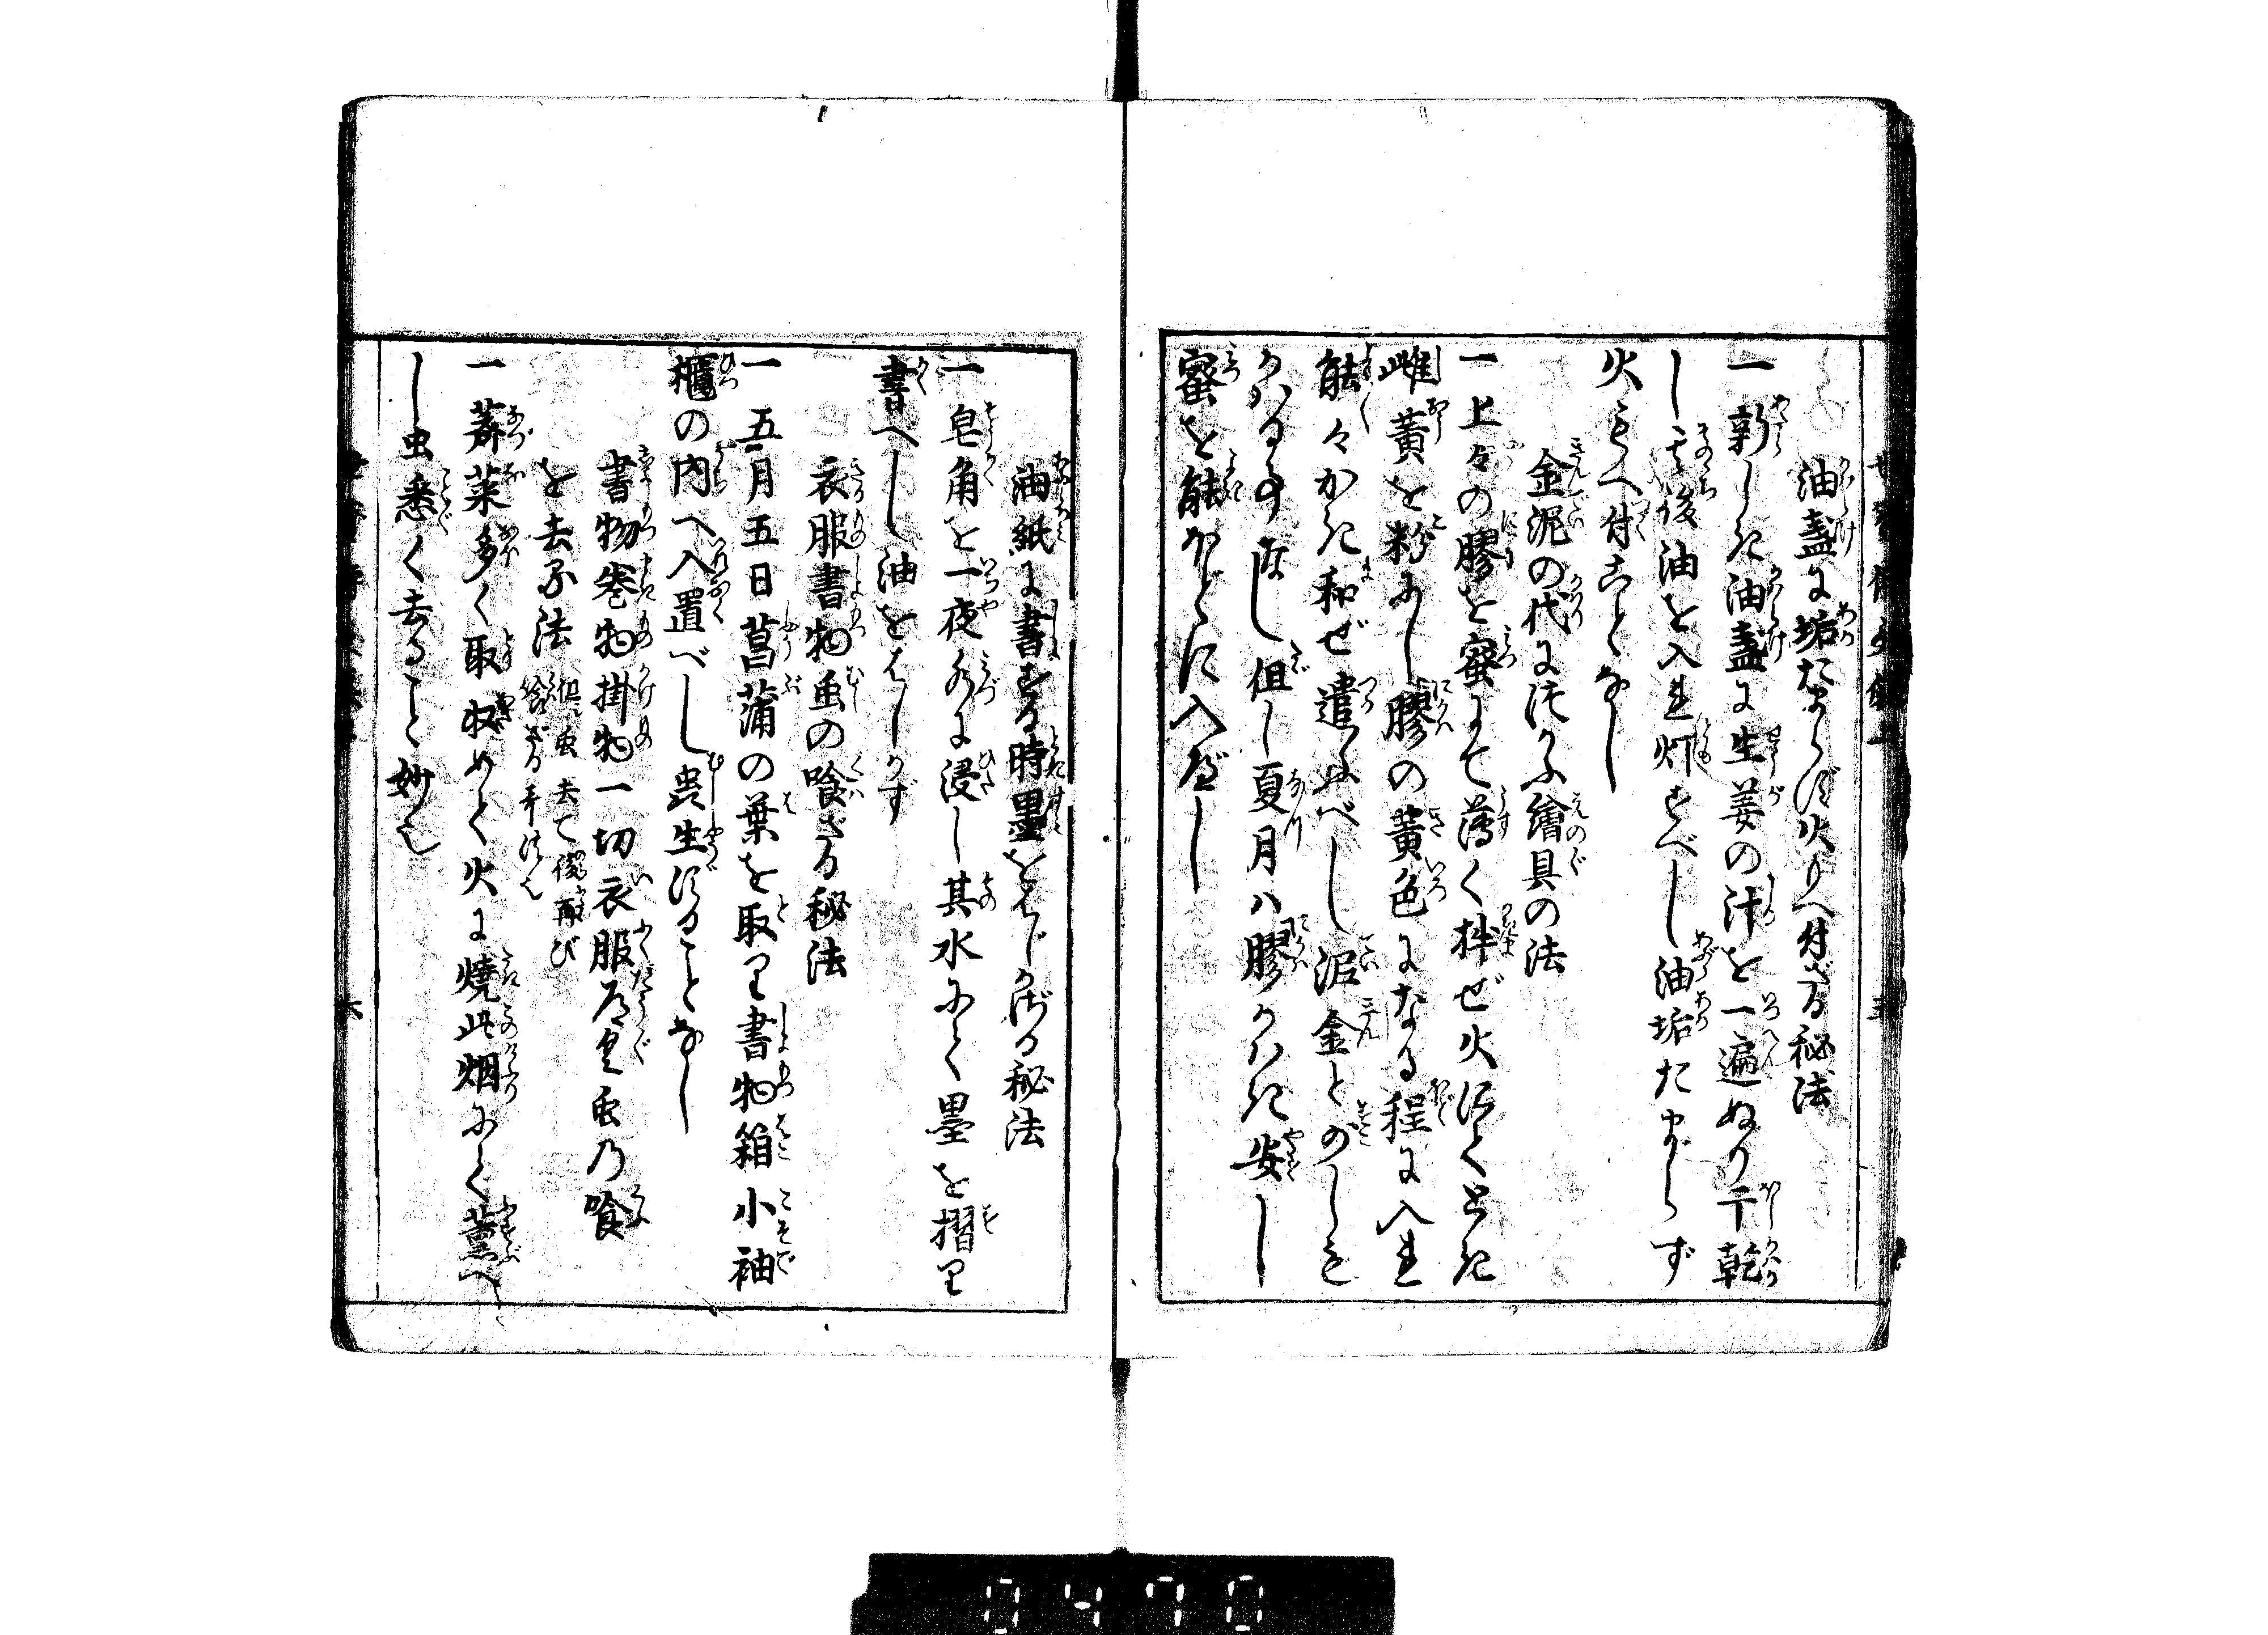 油盞に垢たまらず火うへ付ざる秘法
一新しき油盞に生姜の汁を一遍ぬり干乾
し其後油を入れ灯すべし油垢たまらず
火うへ付ことなし
金泥の代につかふ繪具の法
一上々の膠を蜜にて薄く拌ぜ火にてとき
雌黄を粉にし膠の黄色になる程に入れ
能々かき和ぜ遣ふべし泥金とのしも
かはる事なし但し夏月ハ膠かハき安し
蜜を能ほどに入べし
油紙に書する時墨をはじかざる秘法
一皂角を一夜水に浸し其水にて墨を摺り
書べし油をはじかず
衣服書物虫の喰ざる秘法
一五月五日菖蒲の葉を取り書物箱小袖
櫃の内へ入置べし虫生ずることなし
書物巻物掛物一切衣服道具虫の喰
を去る法 但し虫去て後再び喰ざる奇法也
一薺菜多く取収めて火に焼此烟にて薫べ
し虫悉く去ること妙也
六
0470